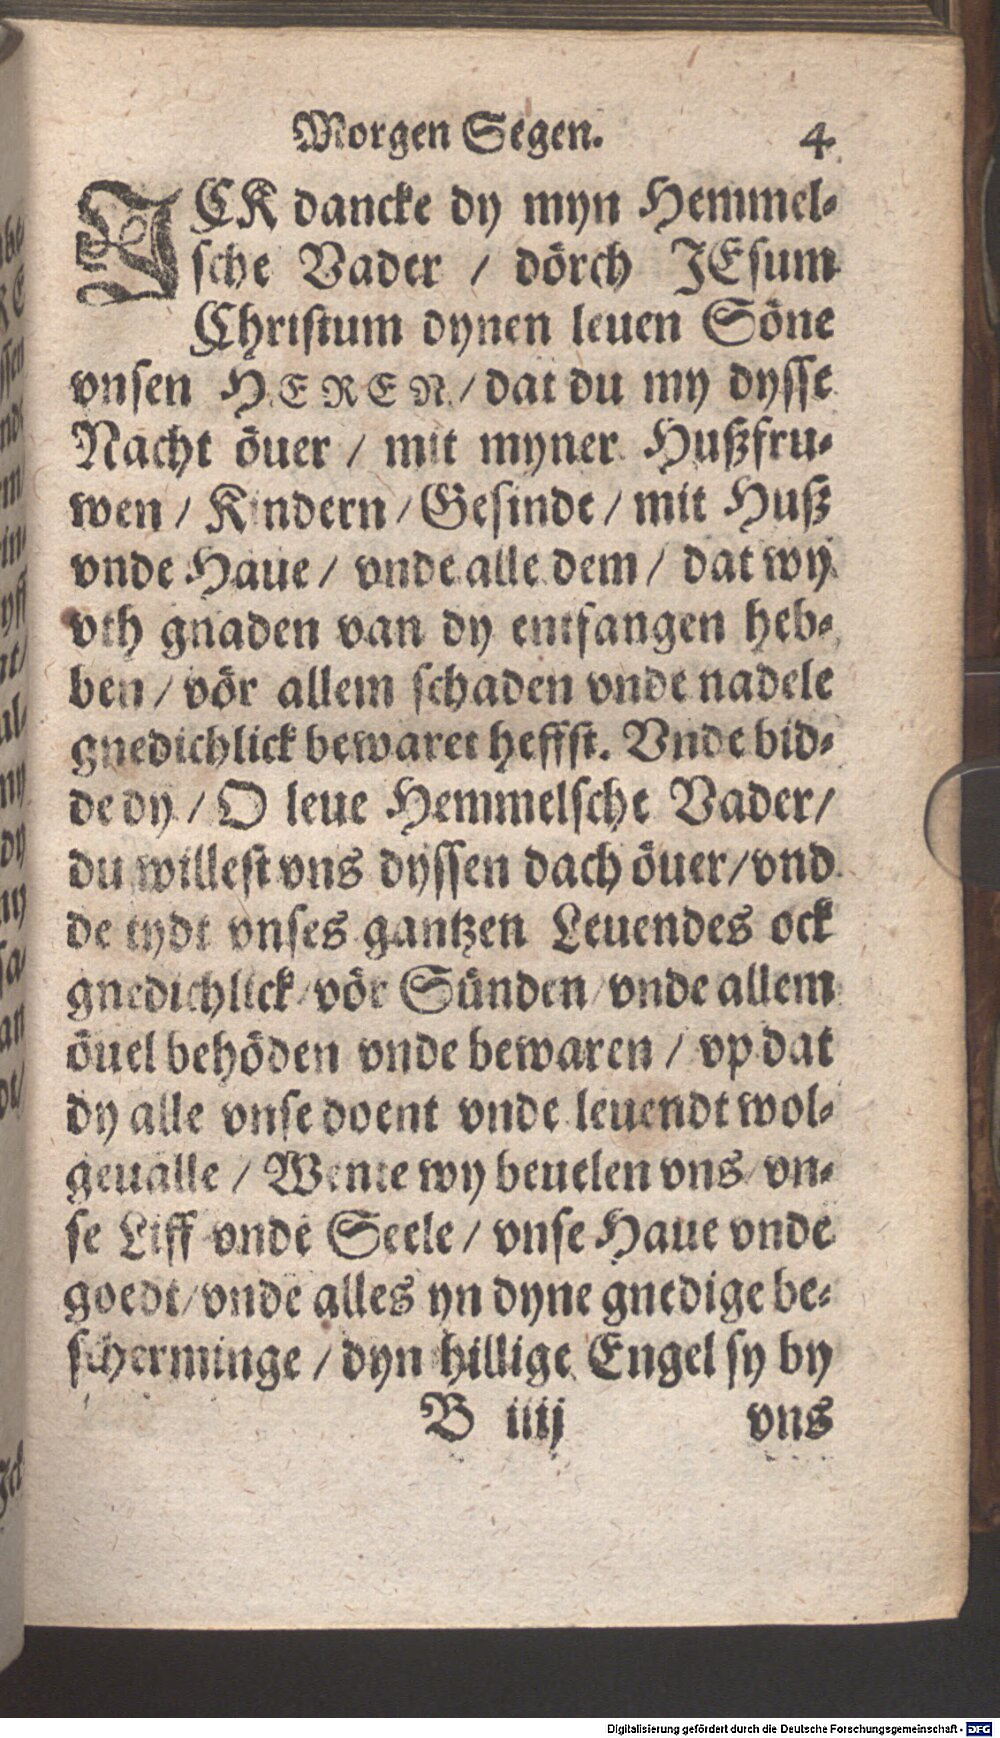 Morgen Segen. 4
ICK dancke dy myn Hemmel-
sche Vader / dörch JEsum
Christum dynen leuen Söne
vnsen HEREN / dat du my dysse
Nacht öuer / mit myner Hußfru-
wen / Kindern / Gesinde / mit Huß
vnde Haue / vnde alle dem / dat wy
vth gnaden van dy entfangen heb-
ben / vör allem schaden vnde nadele
gnedichlick bewaret heffst. Vnde bid-
de dy / O leue Hemmelsche Vader /
du willest vns dyssen dach öuer / vnd
de tydt vnses gantzen Leuendes ock
gnedichlick / vör Sünden / vnde allem
öuel behöden vnde bewaren / vp dat
dy alle vnse doent vnde leuendt wol-
geualle / Wente wy beuelen vns / vn-
se Liff vnde Seele / vnse Haue vnde
goedt / vnde alles yn dyne gnedige be-
scherminge / dyn hillige Engel sy by
B iiij vns
Digitalisierung gefördert durch die Deutsche Forschungsgemeinschaft - DFG